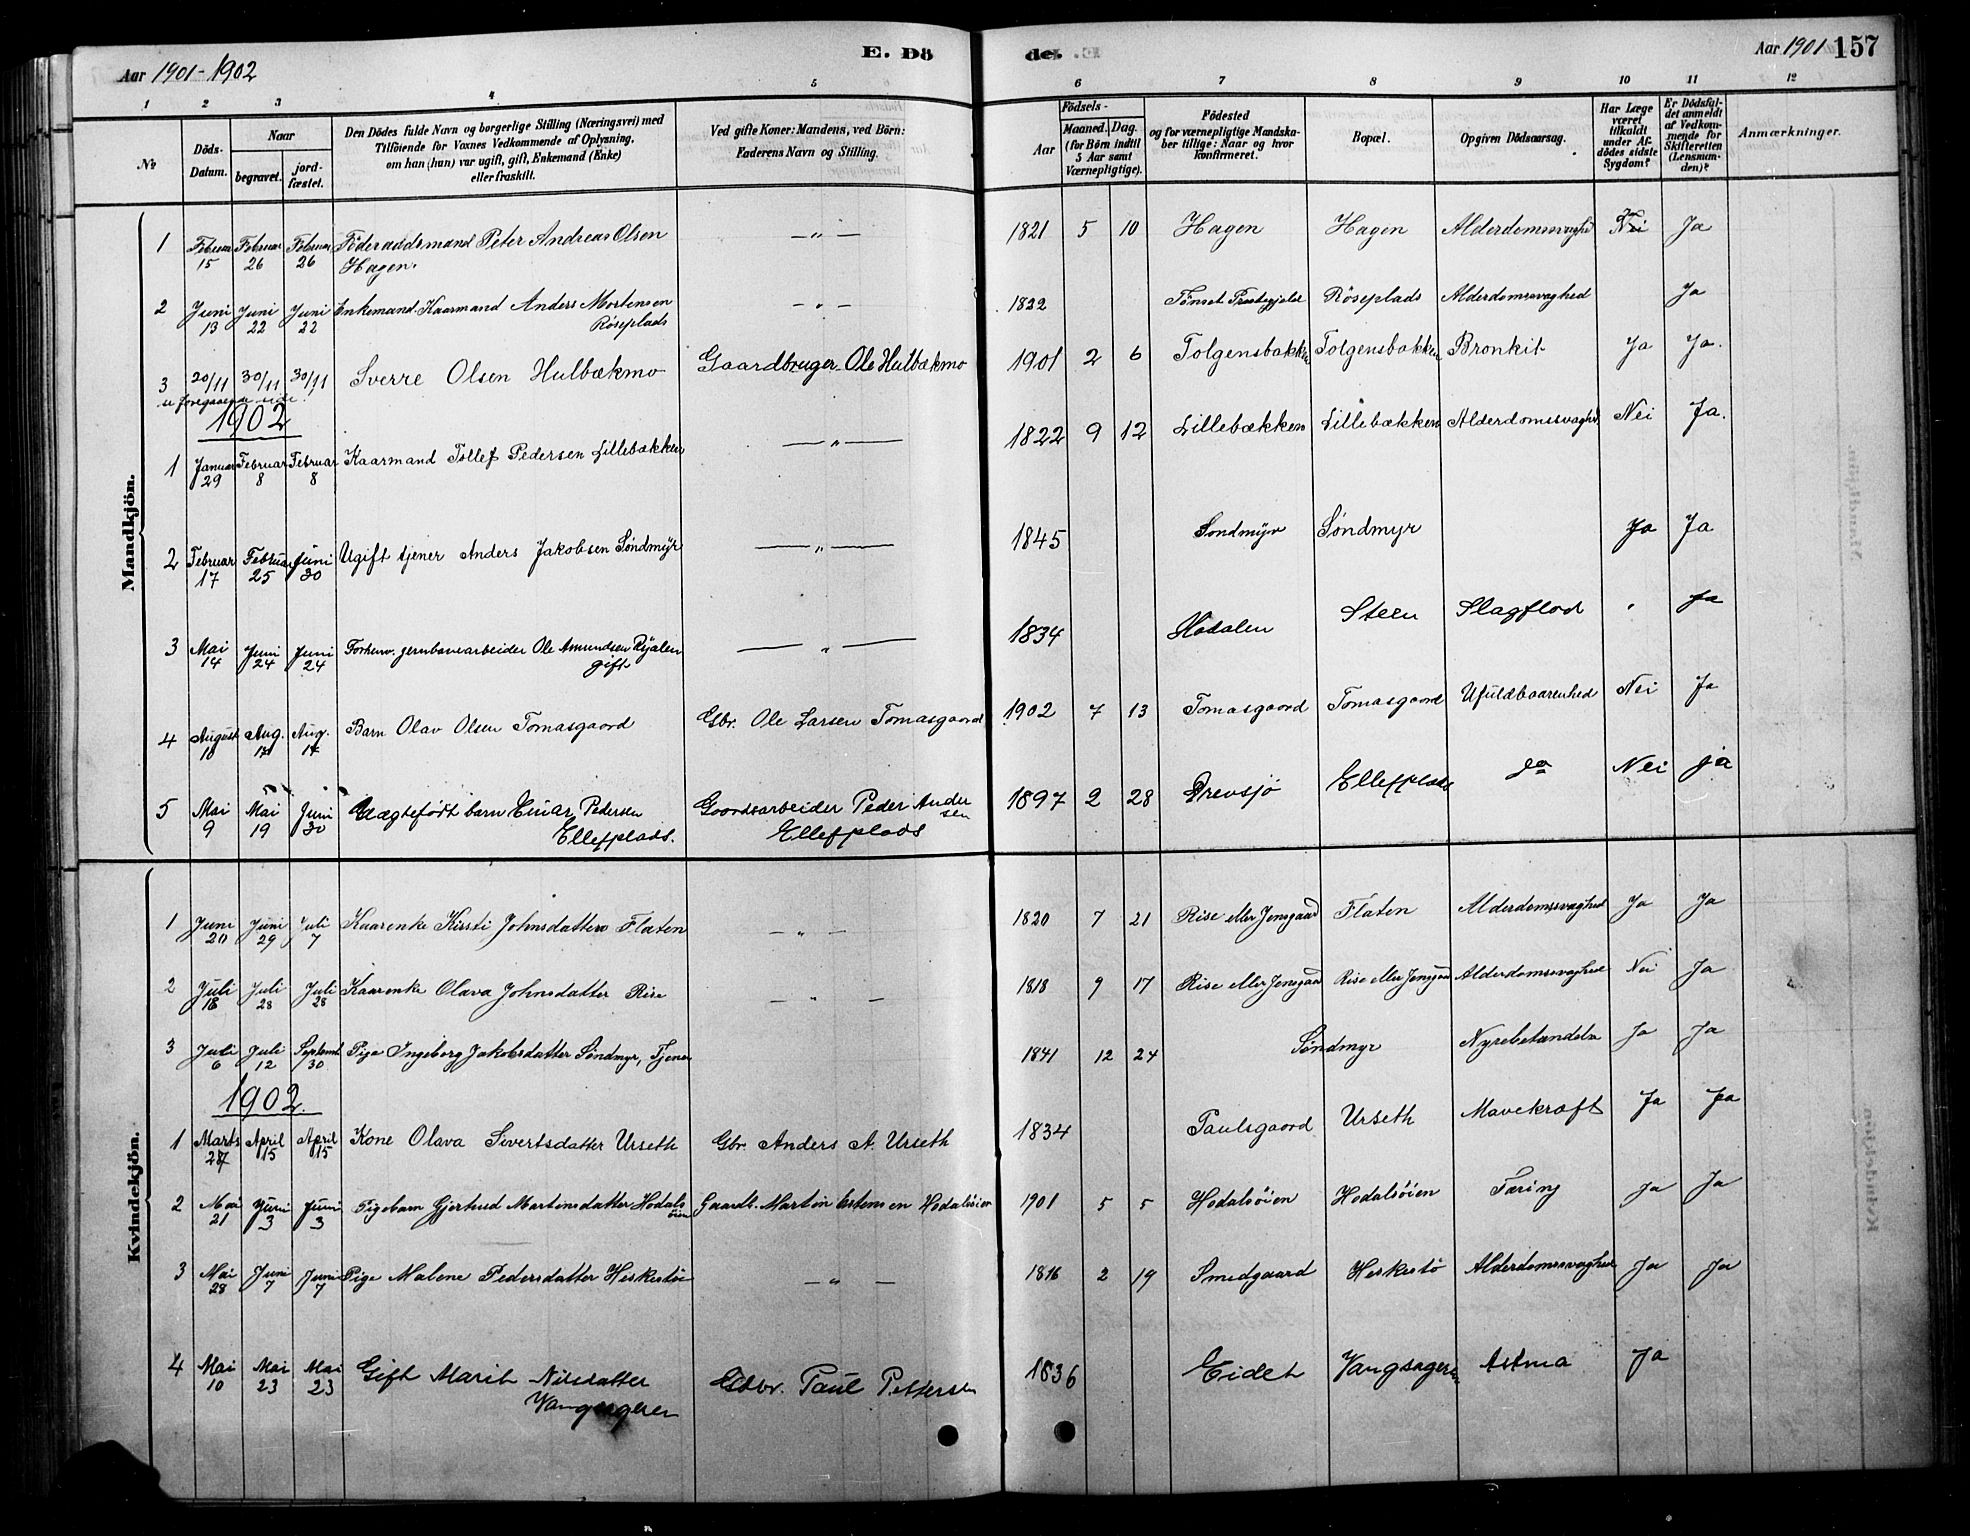 Aar 1901-1902
E. Dö
de.
Aar 1901
157
1 2 3 4 5 6 7 8 9 10 11 12
No
Döds-
Datum.
Naar
begravet.
jord-
fæstet.
Den Dödes fulde Navn og borgerlige Stilling (Næringsvei) med
Tilföiende for Voxnes Vedkommende af Oplysning,
om han (hun) var ugift, gift, Enkemand (Enke)
eller fraskilt.
Ved gifte Koner: Mandens, ved Börn:
Faderens Navn og Stilling.
Födsels-
Aar
Maaned. Dag.
(for Börn indtil
5 Aar samt
Værnepligtige).
Födested
og for værnepligtige Mandska-
ber tillige: Naar og hvor
konfirmeret.
Bopæl.
Opgiven Dödsaarsag.
Har Læge
været
tilkaldt
under Af-
dödes sidste
Sygdom?
Er Dödsfal-
det anmeldt
af Vedkom-
mende for
Skifteretten
(Lensman-
den)?
Anmærkninger.
Mandkjön.
1 Februar 15 Februar 26 Februar 26 Föderaadsmand Peter Andreas Olsen — " — 1821 5 10 Hagen Hagen Alderdomssvaghed Nei Ja
Hagen.
2 Juni 13 Juni 22 Juni 22 Enkemand. Kaarmand Anders Mortensen — " — 1822 Tönset Præstegjeld Röseplads Alderdomssvaghed Ja
Röseplads
3 20/11 30/11 30/11 Sverre Olsen Hulbækmo Gaardbruger Ole Hulbækmo 1901 2 6 Tolgensbakken Tolgensbakken Bronkit Ja Ja.
foregaaende side
1902
1 Januar 29 Februar 8 Februar 8 Kaarmand Tollef Pedersen Lillebækken — " — 1822 9 12 Lillebækken Lillebækken Alderdomssvaghed Nei Ja.
2 Februar 17 Februar 25 Juni 30 Ugift tjener Anders Jakobsen Söndmyr — " — 1845 Söndmyr Söndmyr Ja Ja
3 Mai 14 Juni 24 Juni 24 Forhenv. jernbanearbeider Ole Amundsen Ryalen — " — 1834 Hodalen Steen Slagflod Ja
gift
4 August 10 Aug. Aug. 17 Barn Olav Olsen Tomasgaard Gbr. Ole Larsen Tomasgaard 1902 7 13 Tomasgaard Tomasgaard Ufuldbaarenhed Nei Ja
5 Mai 9 Mai 19 Juni 30 Uægtefödt barn Einar Pedersen Gaardsarbeider Peder Ander 1897 2 28 Drevsjö Ellefplads do Nei ja
Ellefplads.
sen
Ellefplads
Kvindekjön.
1 Juni 20 Juni 29 Juli 7 Kaarenke Kirsti Johnsdatter Flaten — " — 1820 7 21 Rise eller Jonsgaard Flaten Alderdomssvaghed Ja Ja
2 Juli 18 Juli 28 Juli 28 Kaarenke Olava Johnsdatter Rise — " — 1818 9 17 Rise eller Jonsgaard Rise eller Jonsgaard Alderdomssvaghed Nei Ja
3 Juli 6 Juli 12 Septemb 30 Pige Ingeborg Jakobsdatter Söndmyr, Tjener 1841 12 24 Söndmyr Nyrebetændelse Ja Ja
1902.
1 Marts 27 April 15 April 15 Kone Olava Sivertsdatter Urseth Gbr. Anders A. Urseth 1834 Paulsgaard Urseth Mavekræft Ja Ja
2 Mai 21 Juni 3 Juni 3 Pigebarn Gjertrud Martinsdatter Hodals Gaardb. Martin Estensen Hodalsöien 1901 5 5 Hodalsöien Hodalsöien Tæring Ja Ja
öien
3 Mai 28 Juni 7 Juni 7 Pige Malene Pedersdatter Heskestö — " — 1816 2 19 Smedgaard Heskestö Alderdomssvaghed Ja Ja
4 Mai 10 Mai 23 Mai 23 Gift Marit Nilsdatter Gbr. Paul Petterse 1836 Eidet Vangsageren Astma Ja
Vangsageren